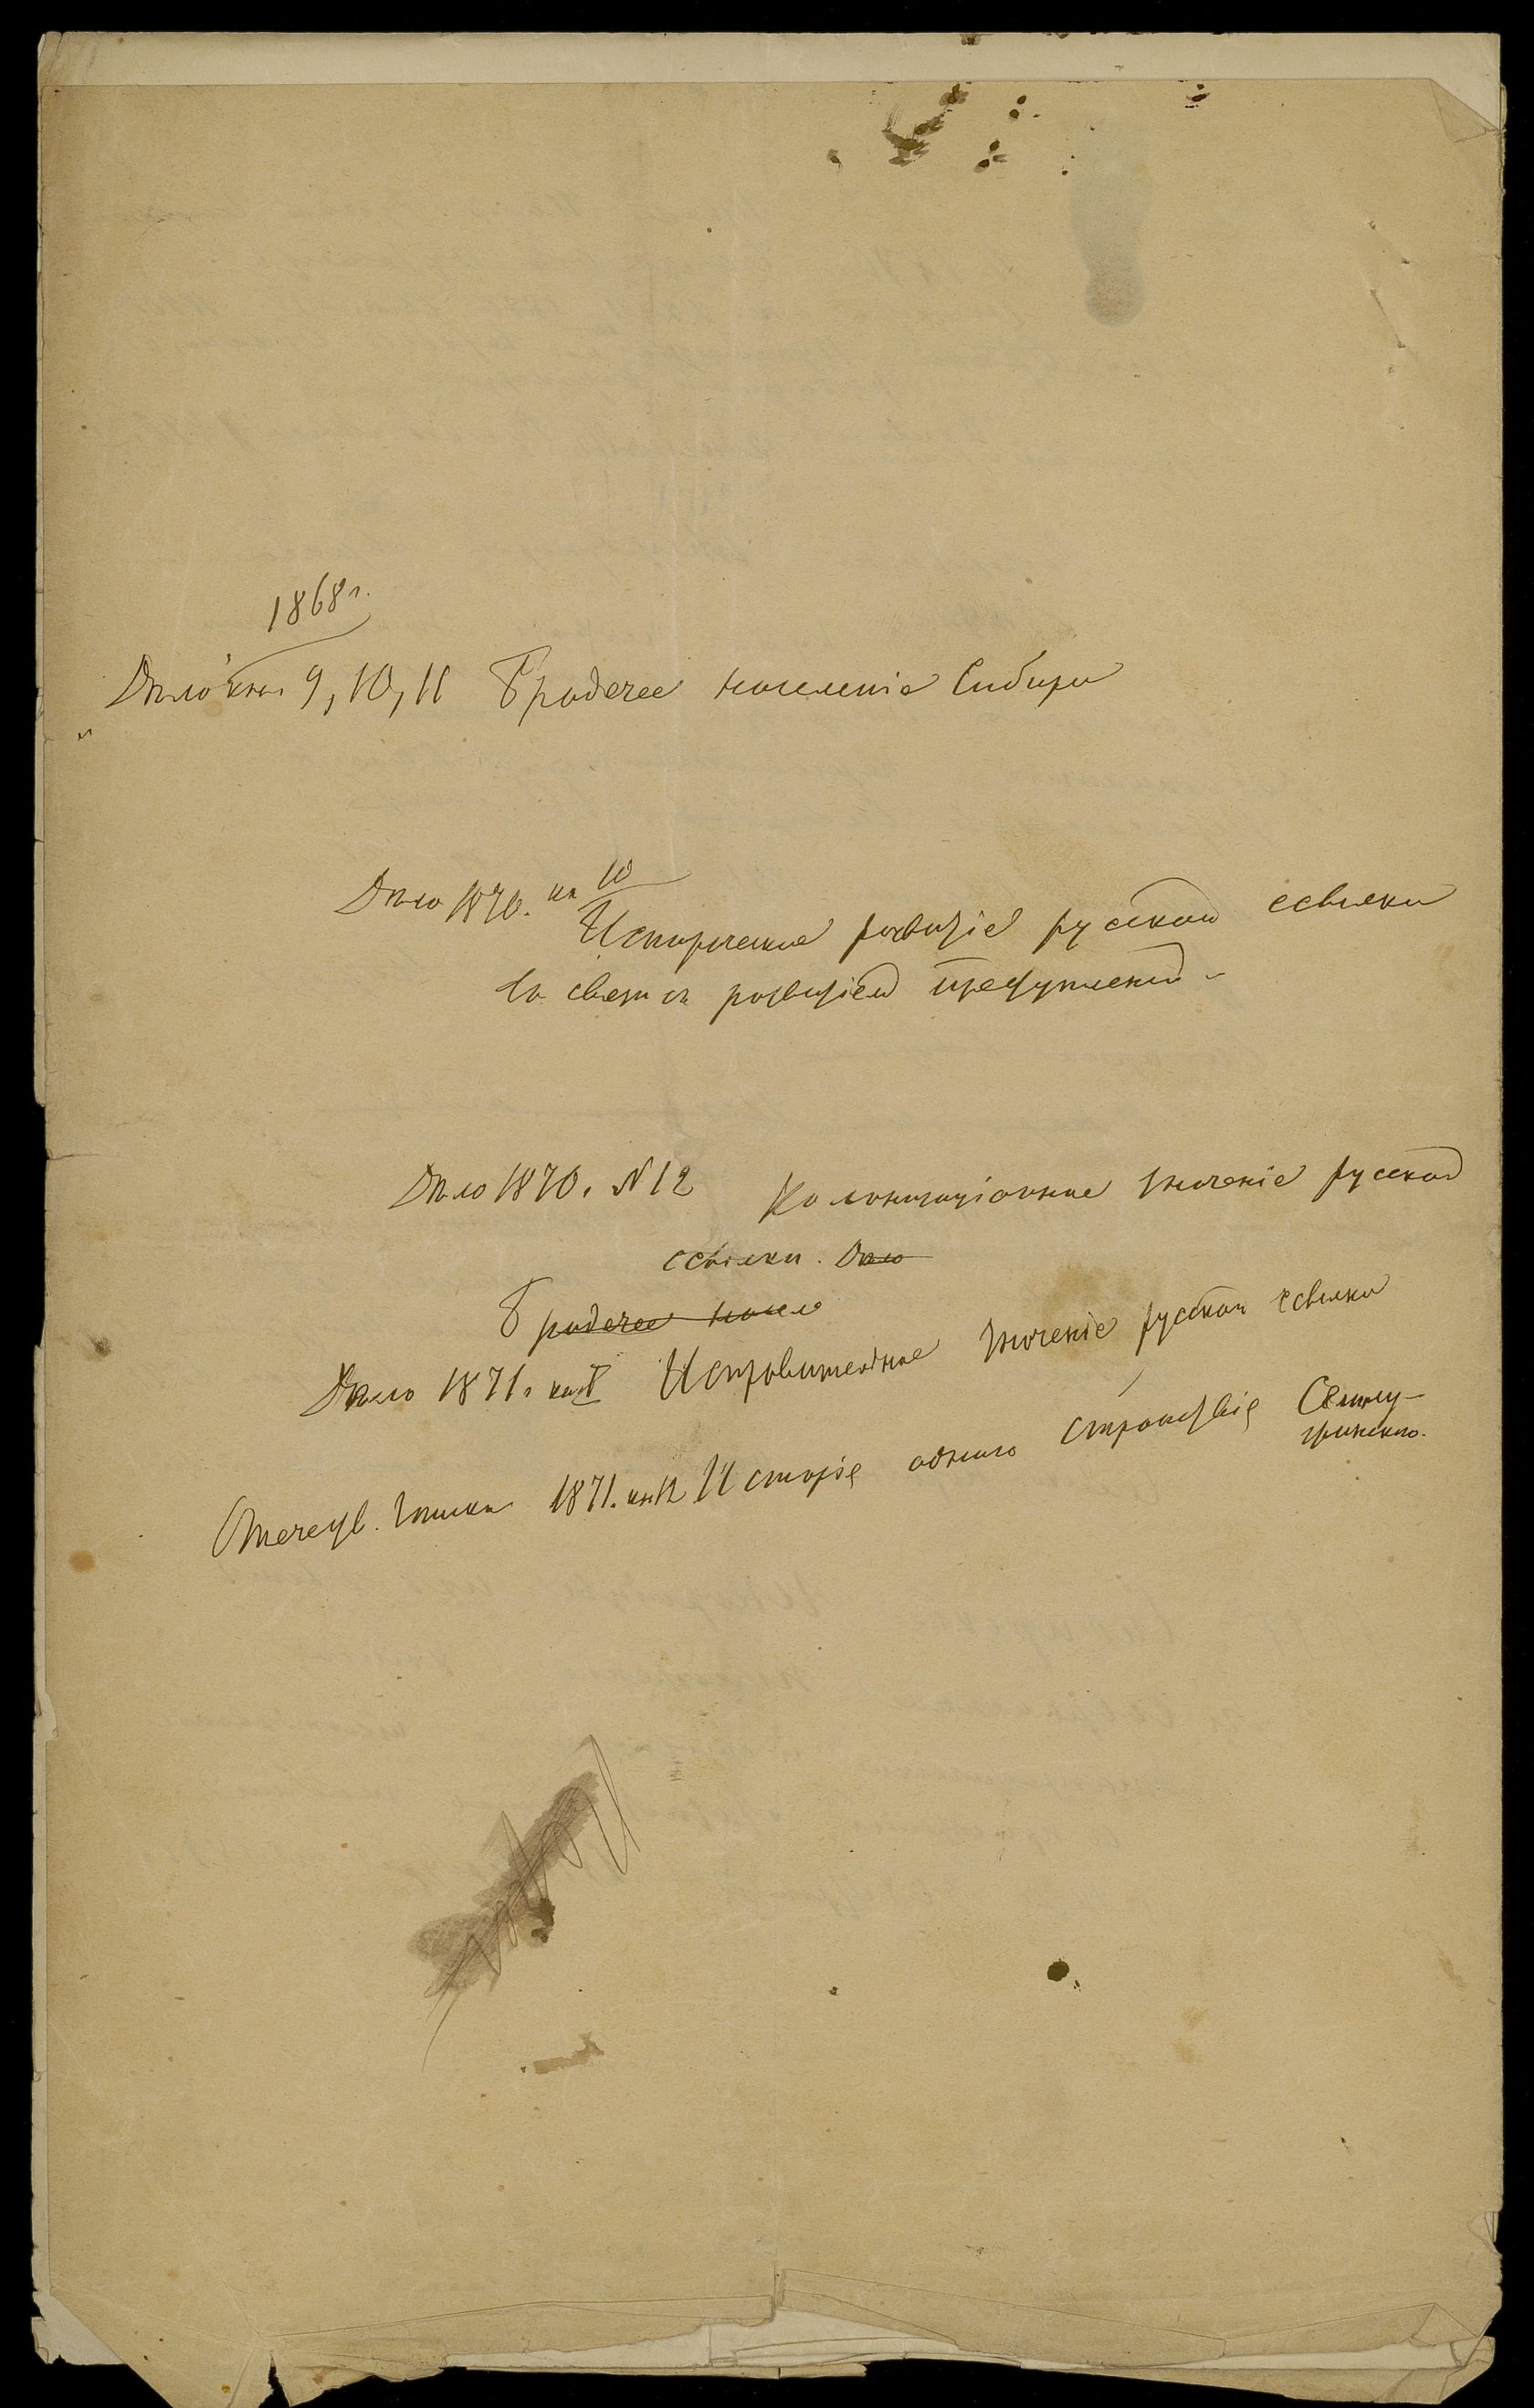 1868 г.
Дѣло кн. 9, 10, 11 Бродячее населеніе Сибири
Дѣло 1870. кн 10
Историческое развитіе русской ссылки
въ связи съ развитіем преступленій
Дѣло 1870. N 12 Колонизаціонное значеніе русской
ссылки. Дѣло
Бродячее насел
Дѣло 1871. кн. Исправительное значеніе русской ссылки
Отечеств. Записки 1871. кн 12 Исторія одного странствія